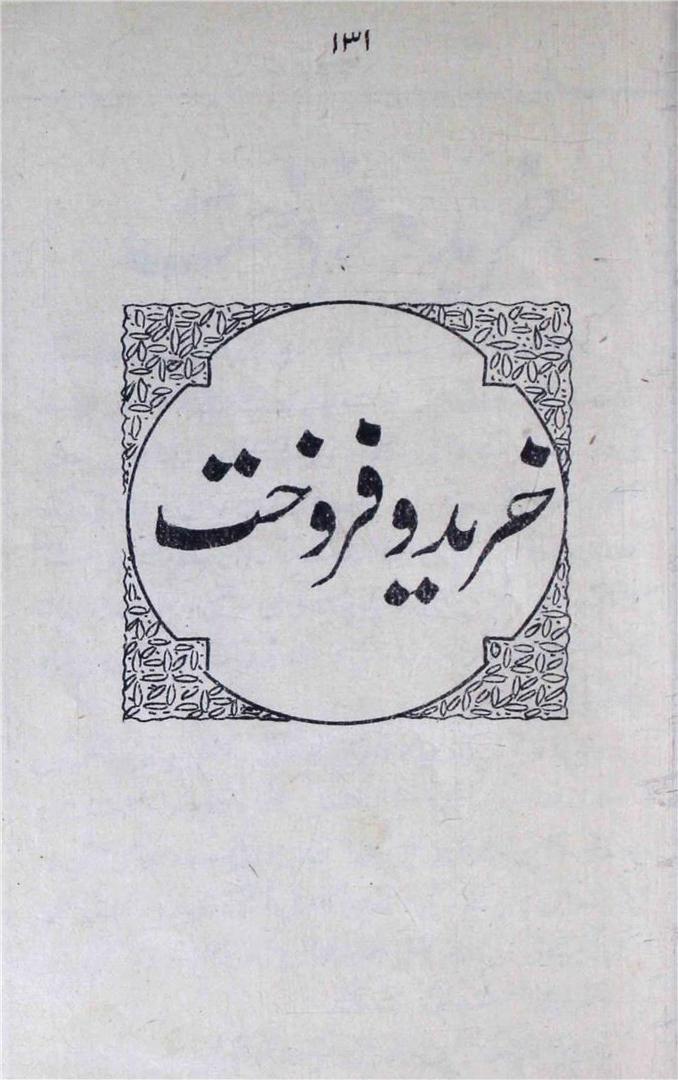 ۱۳۱
خرید و فروخت